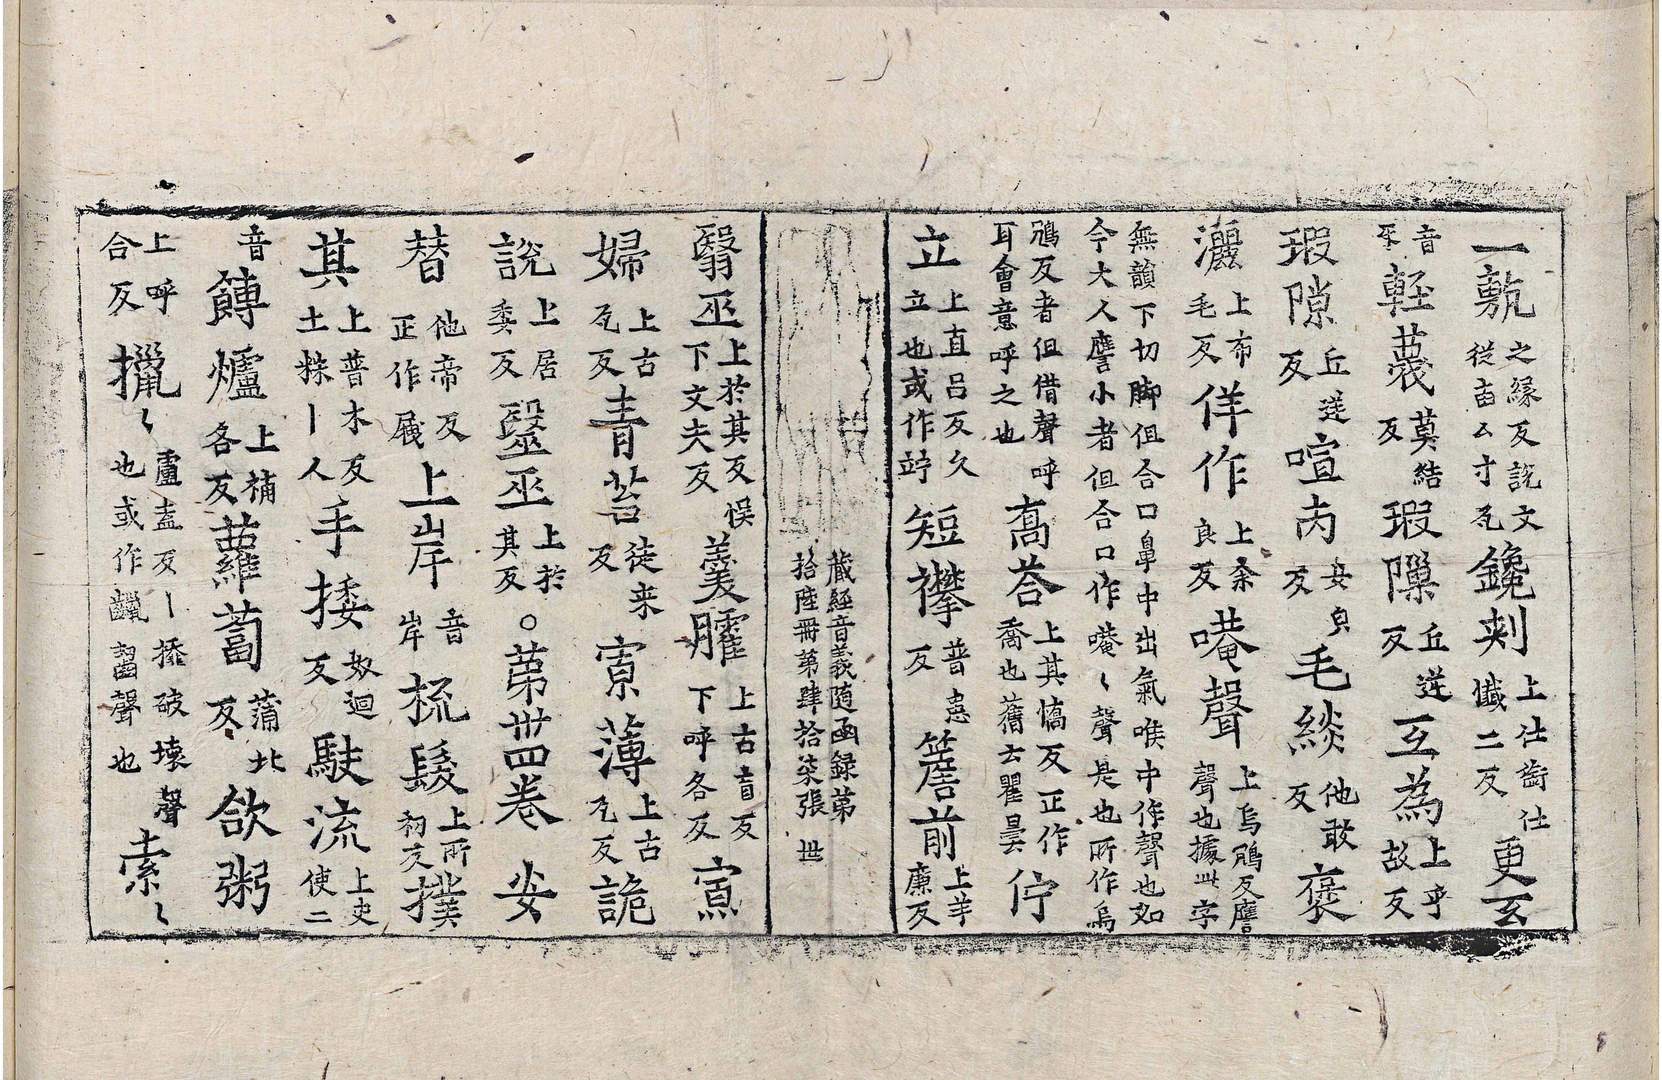 一㪇之緣反說文從叀厶寸𠃵鑱刾上仕銜仕懺二反更互
音乎輊䕾莫結反瑕隟丘逆反互為上乎故反
瑕隙丘逆反喧㐫女皃反毛緂他敢反褒
灑上布毛反佯作上余良反唵聲上烏鴆反譍聲也據此字
無韻下切脚但合口鼻中出氣喉中作聲也如今大人譍小者但合口作唵〻聲是也所作烏
鴆反者但借聲呼耳會意呼之也髙荅上其憍反正作喬也舊云瞿曇佇
立上直吕反久立也或作竚短襻普患反簷前上羊廉反
藏經音義随函録第拾陸冊第肆拾柒張 世
翳巫上於其反悮下文夫反羹臛上古盲反下呼各反寡
婦上古瓦反青苔徒来反寡薄上古瓦反詭
說上居委反毉巫上於其反〇第丗四卷 安
替他帝反正作屐上岸音岸梳䰅上所初反撲
其上普木反土䊞丨人手捼奴迴反駛流上史使二
音餺爐上補各反蘿蔔蒲北反欱粥
上呼合反擸〻盧盍反丨搽破壞聲也或作𪙊齧聲也索〻